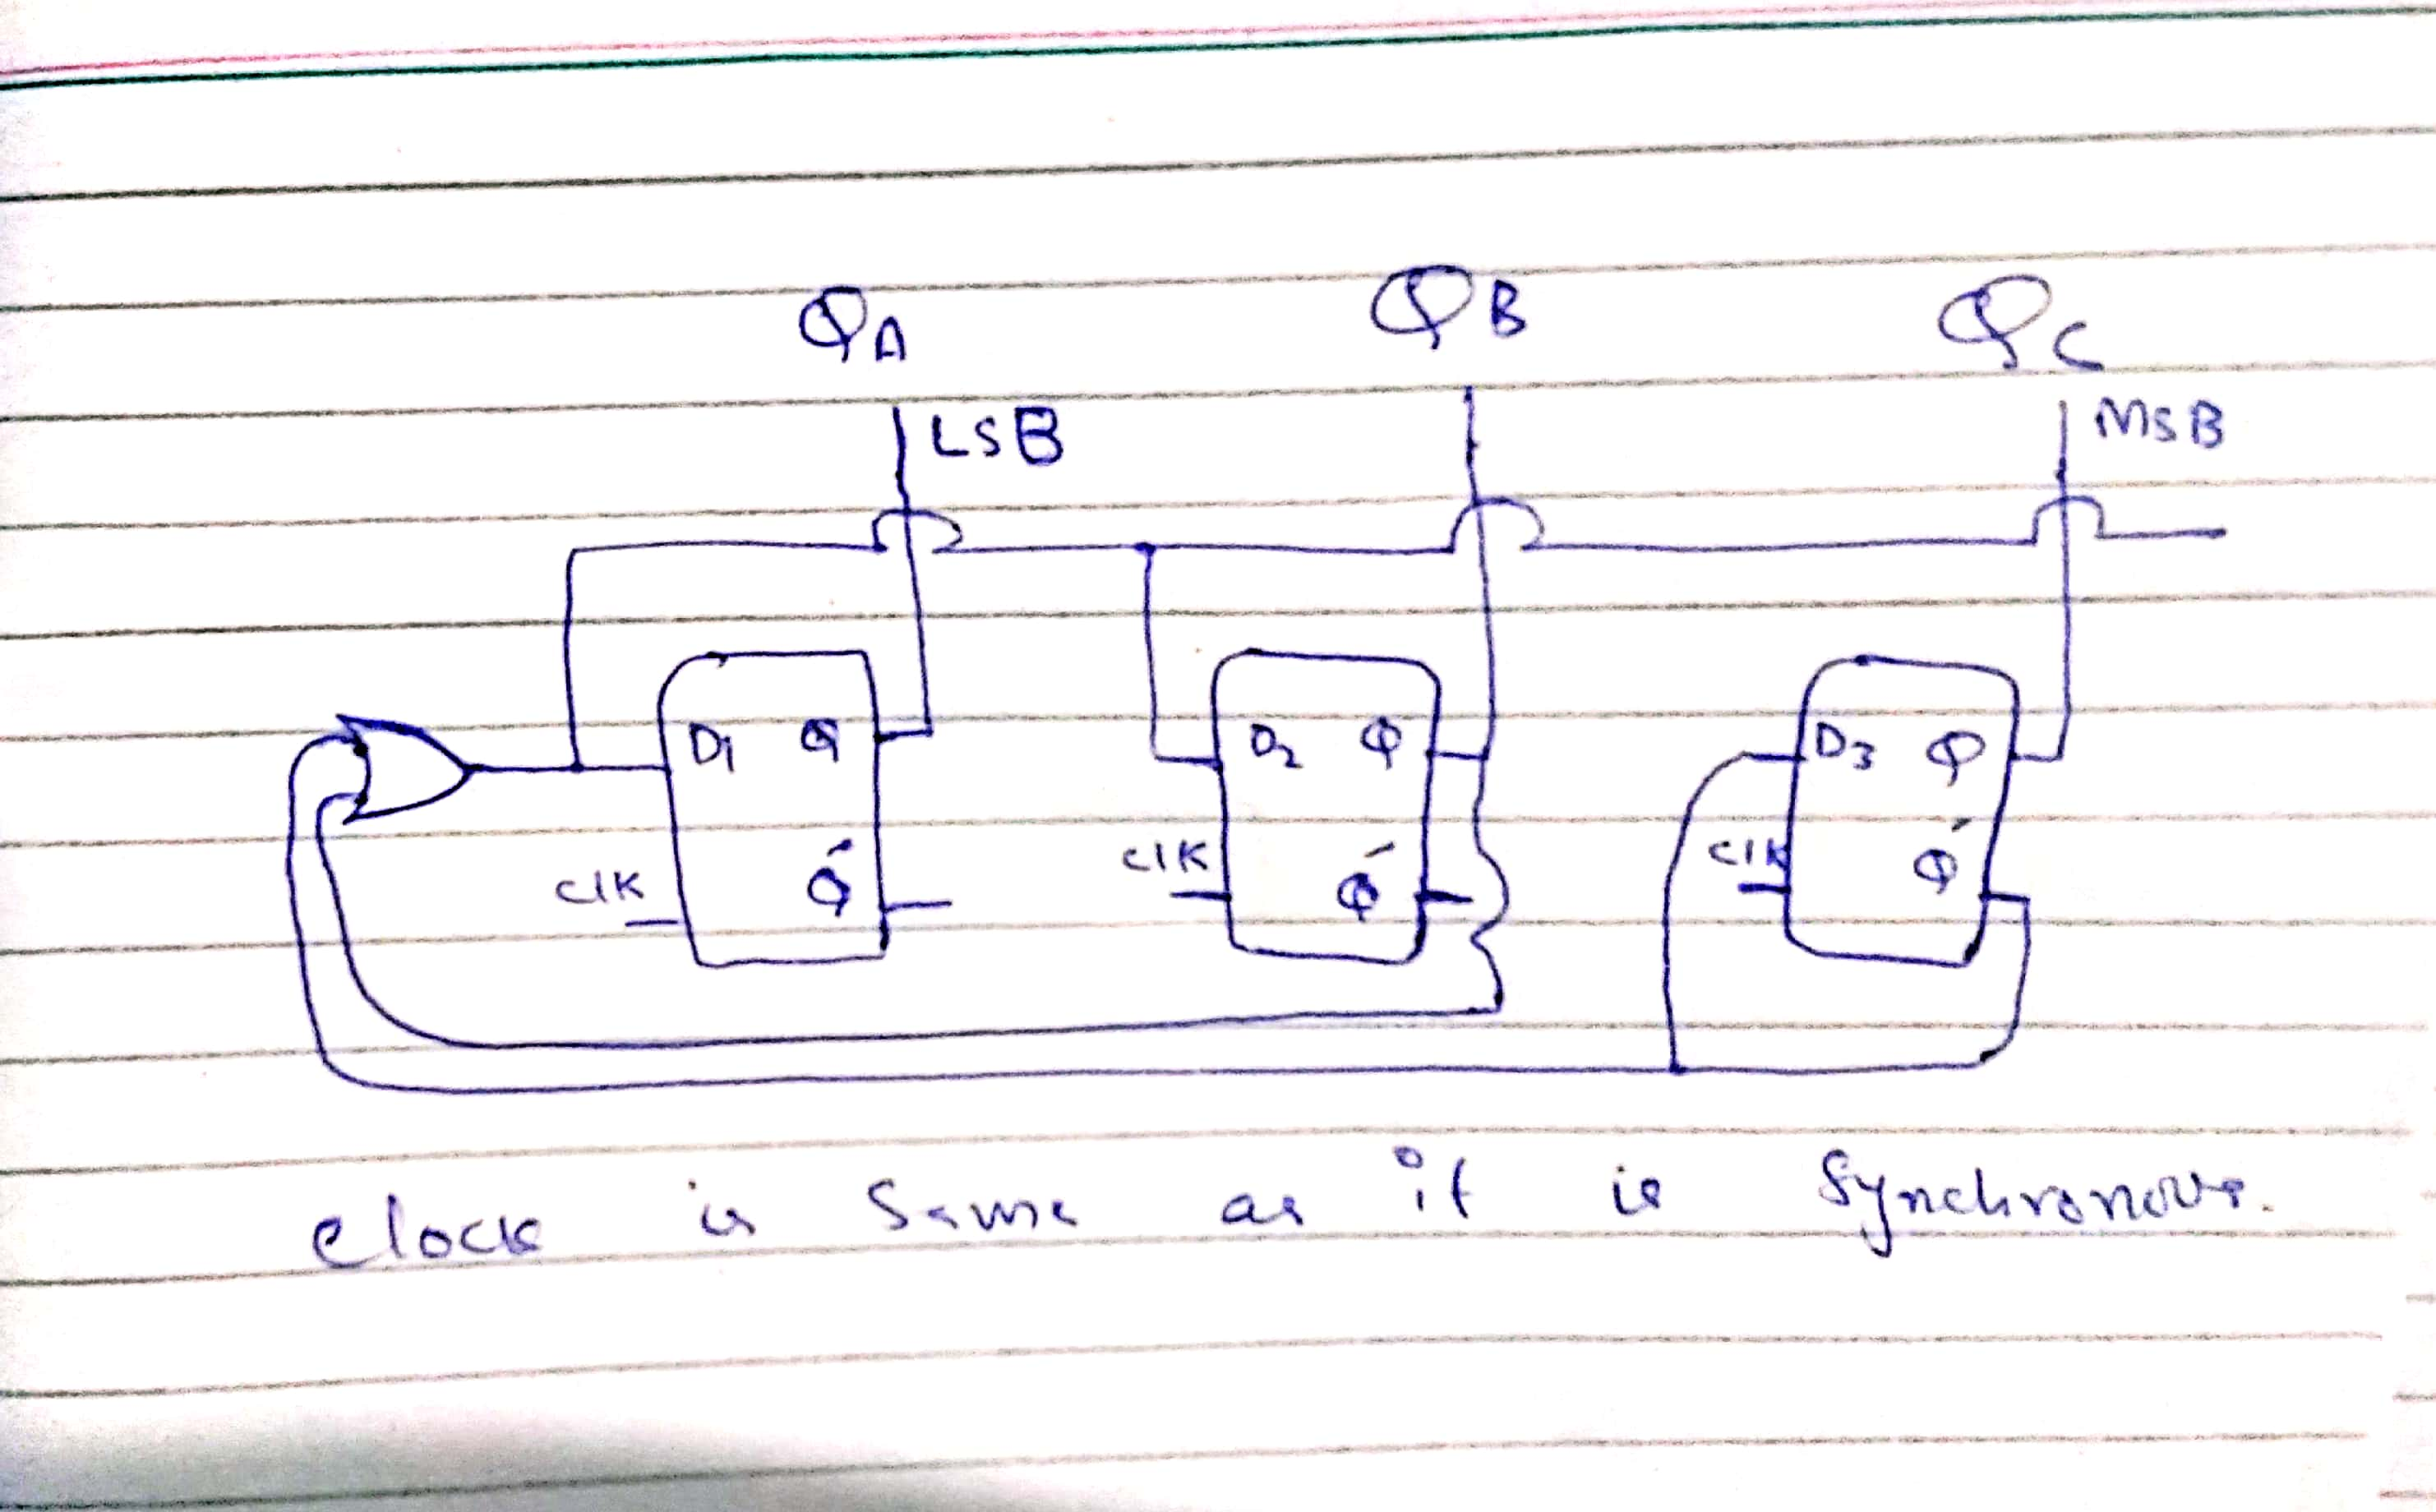 QA QB QC
LSB MSB
D1 Q D2 Q D3 Q
CLK Q́ CLK Q́ CLK Q́
clock is same as it is synchronous.